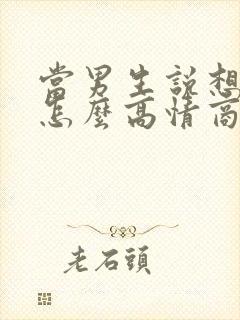 當男生說想
怎麼高情商
老石頭